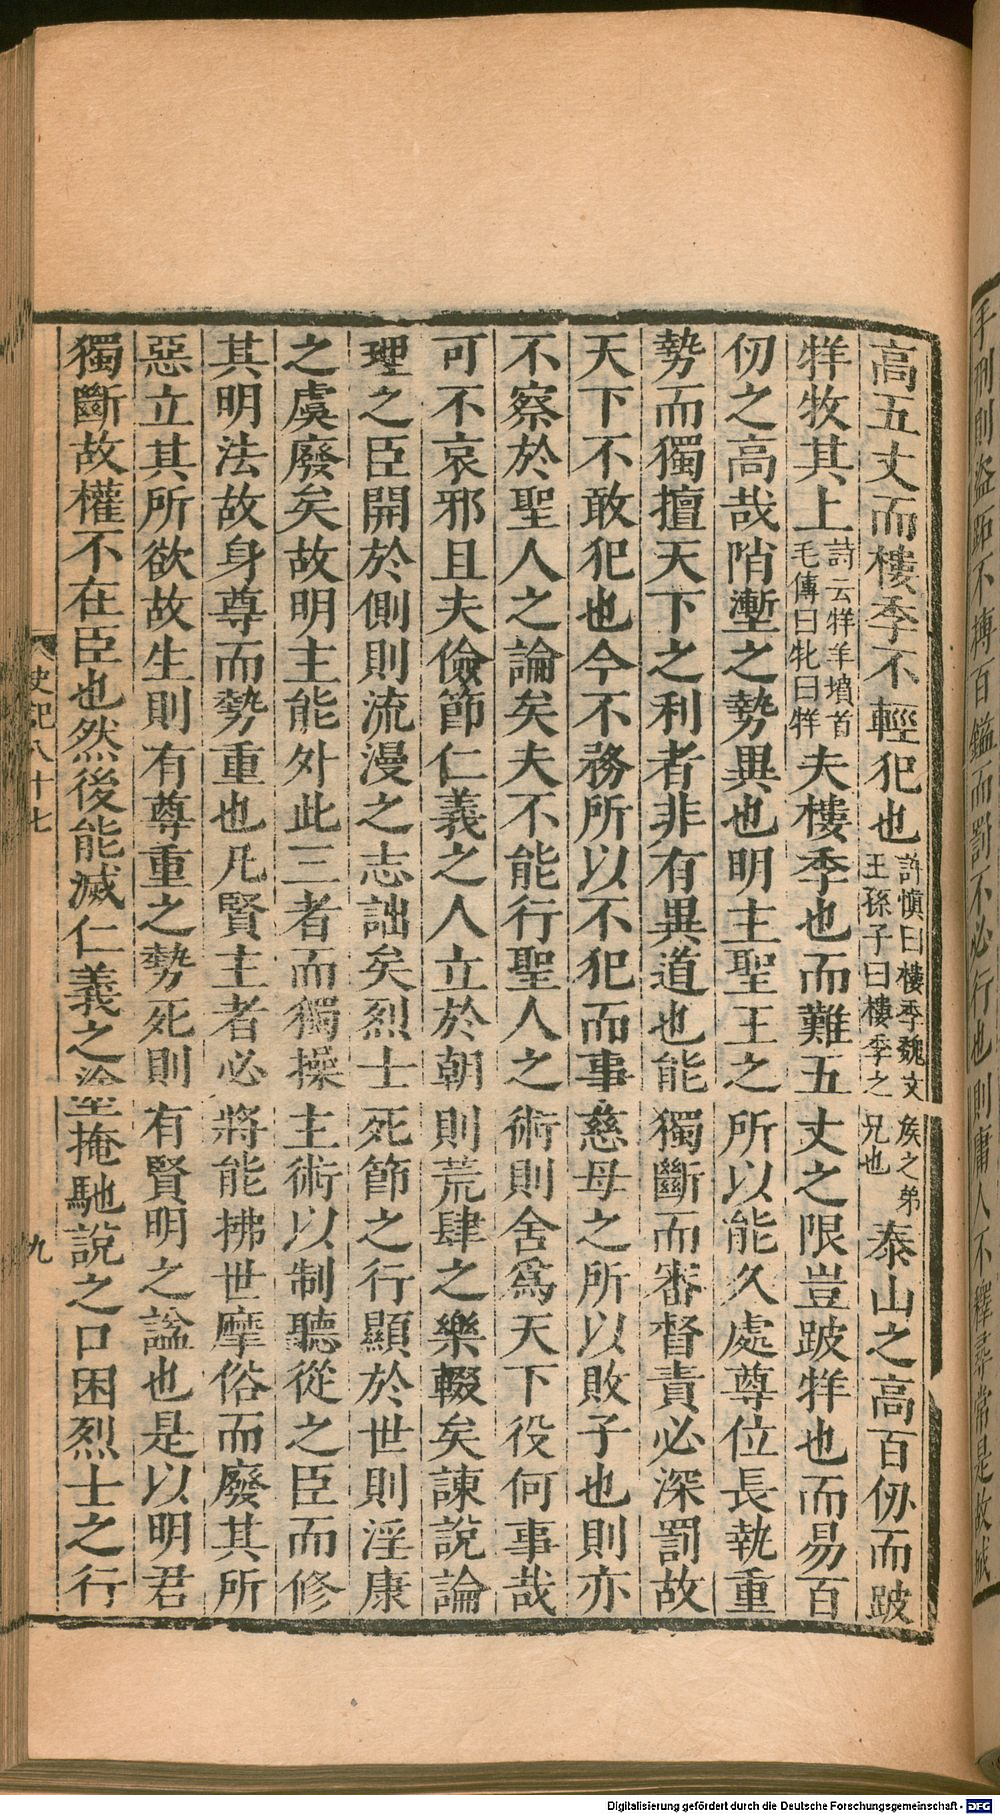 高五丈而樓季不輕犯也許慎曰樓季魏文侯之弟王孫子曰樓季之兄也泰山之高百仞而跛
牂牧其上詩云牂羊墳首毛傳曰牝曰牂夫樓季也而難五丈之限豈跛牂也而易百
仞之高哉陗塹之勢異也明主聖王之所以能久處尊位長執重
勢而獨擅天下之利者非有異道也能獨斷而審督責必深罰故
天下不敢犯也今不務所以不犯而事慈母之所以敗子也則亦
不察於聖人之論矣夫不能行聖人之術則舍爲天下役何事哉
可不哀邪且夫儉節仁義之人立於朝則荒肆之樂輟矣諫說論
理之臣開於側則流漫之志詘矣烈士死節之行顯於世則淫康
之虞廢矣故明主能外此三者而獨操主術以制聽從之臣而修
其明法故身尊而勢重也凡賢主者必將能拂世摩俗而廢其所
惡立其所欲故生則有尊重之勢死則有賢明之諡也是以明君
獨斷故權不在臣也然後能滅仁義之塗掩馳說之口困烈士之行
史記八十七
九
不搏百鎰而罰不必行也則庸人不釋尋常是故城
Digitalisierung gefördert durch die Deutsche Forschungsgemeinschaft - DFG